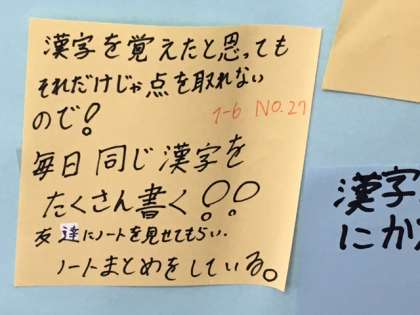 漢字を覚えたと思っても
それだけじゃ点を取れない
ので!
1-6 NO.27
毎日同じ漢字を
たくさん書く!!
友達にノートを見せてもらい.
ノートまとめをしている。
漢字
に